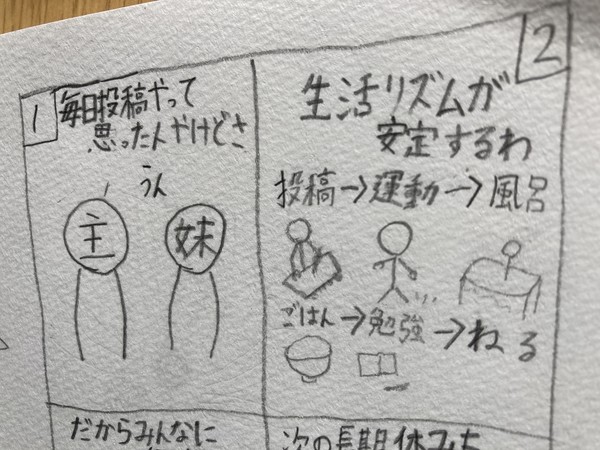 1
毎日投稿やって
思ったんやけどさ
うん
主
妹
2
生活リズムが
安定するわ
投稿→運動→風呂
ごはん→勉強→ねる
だからみんなに
次の長期休みも